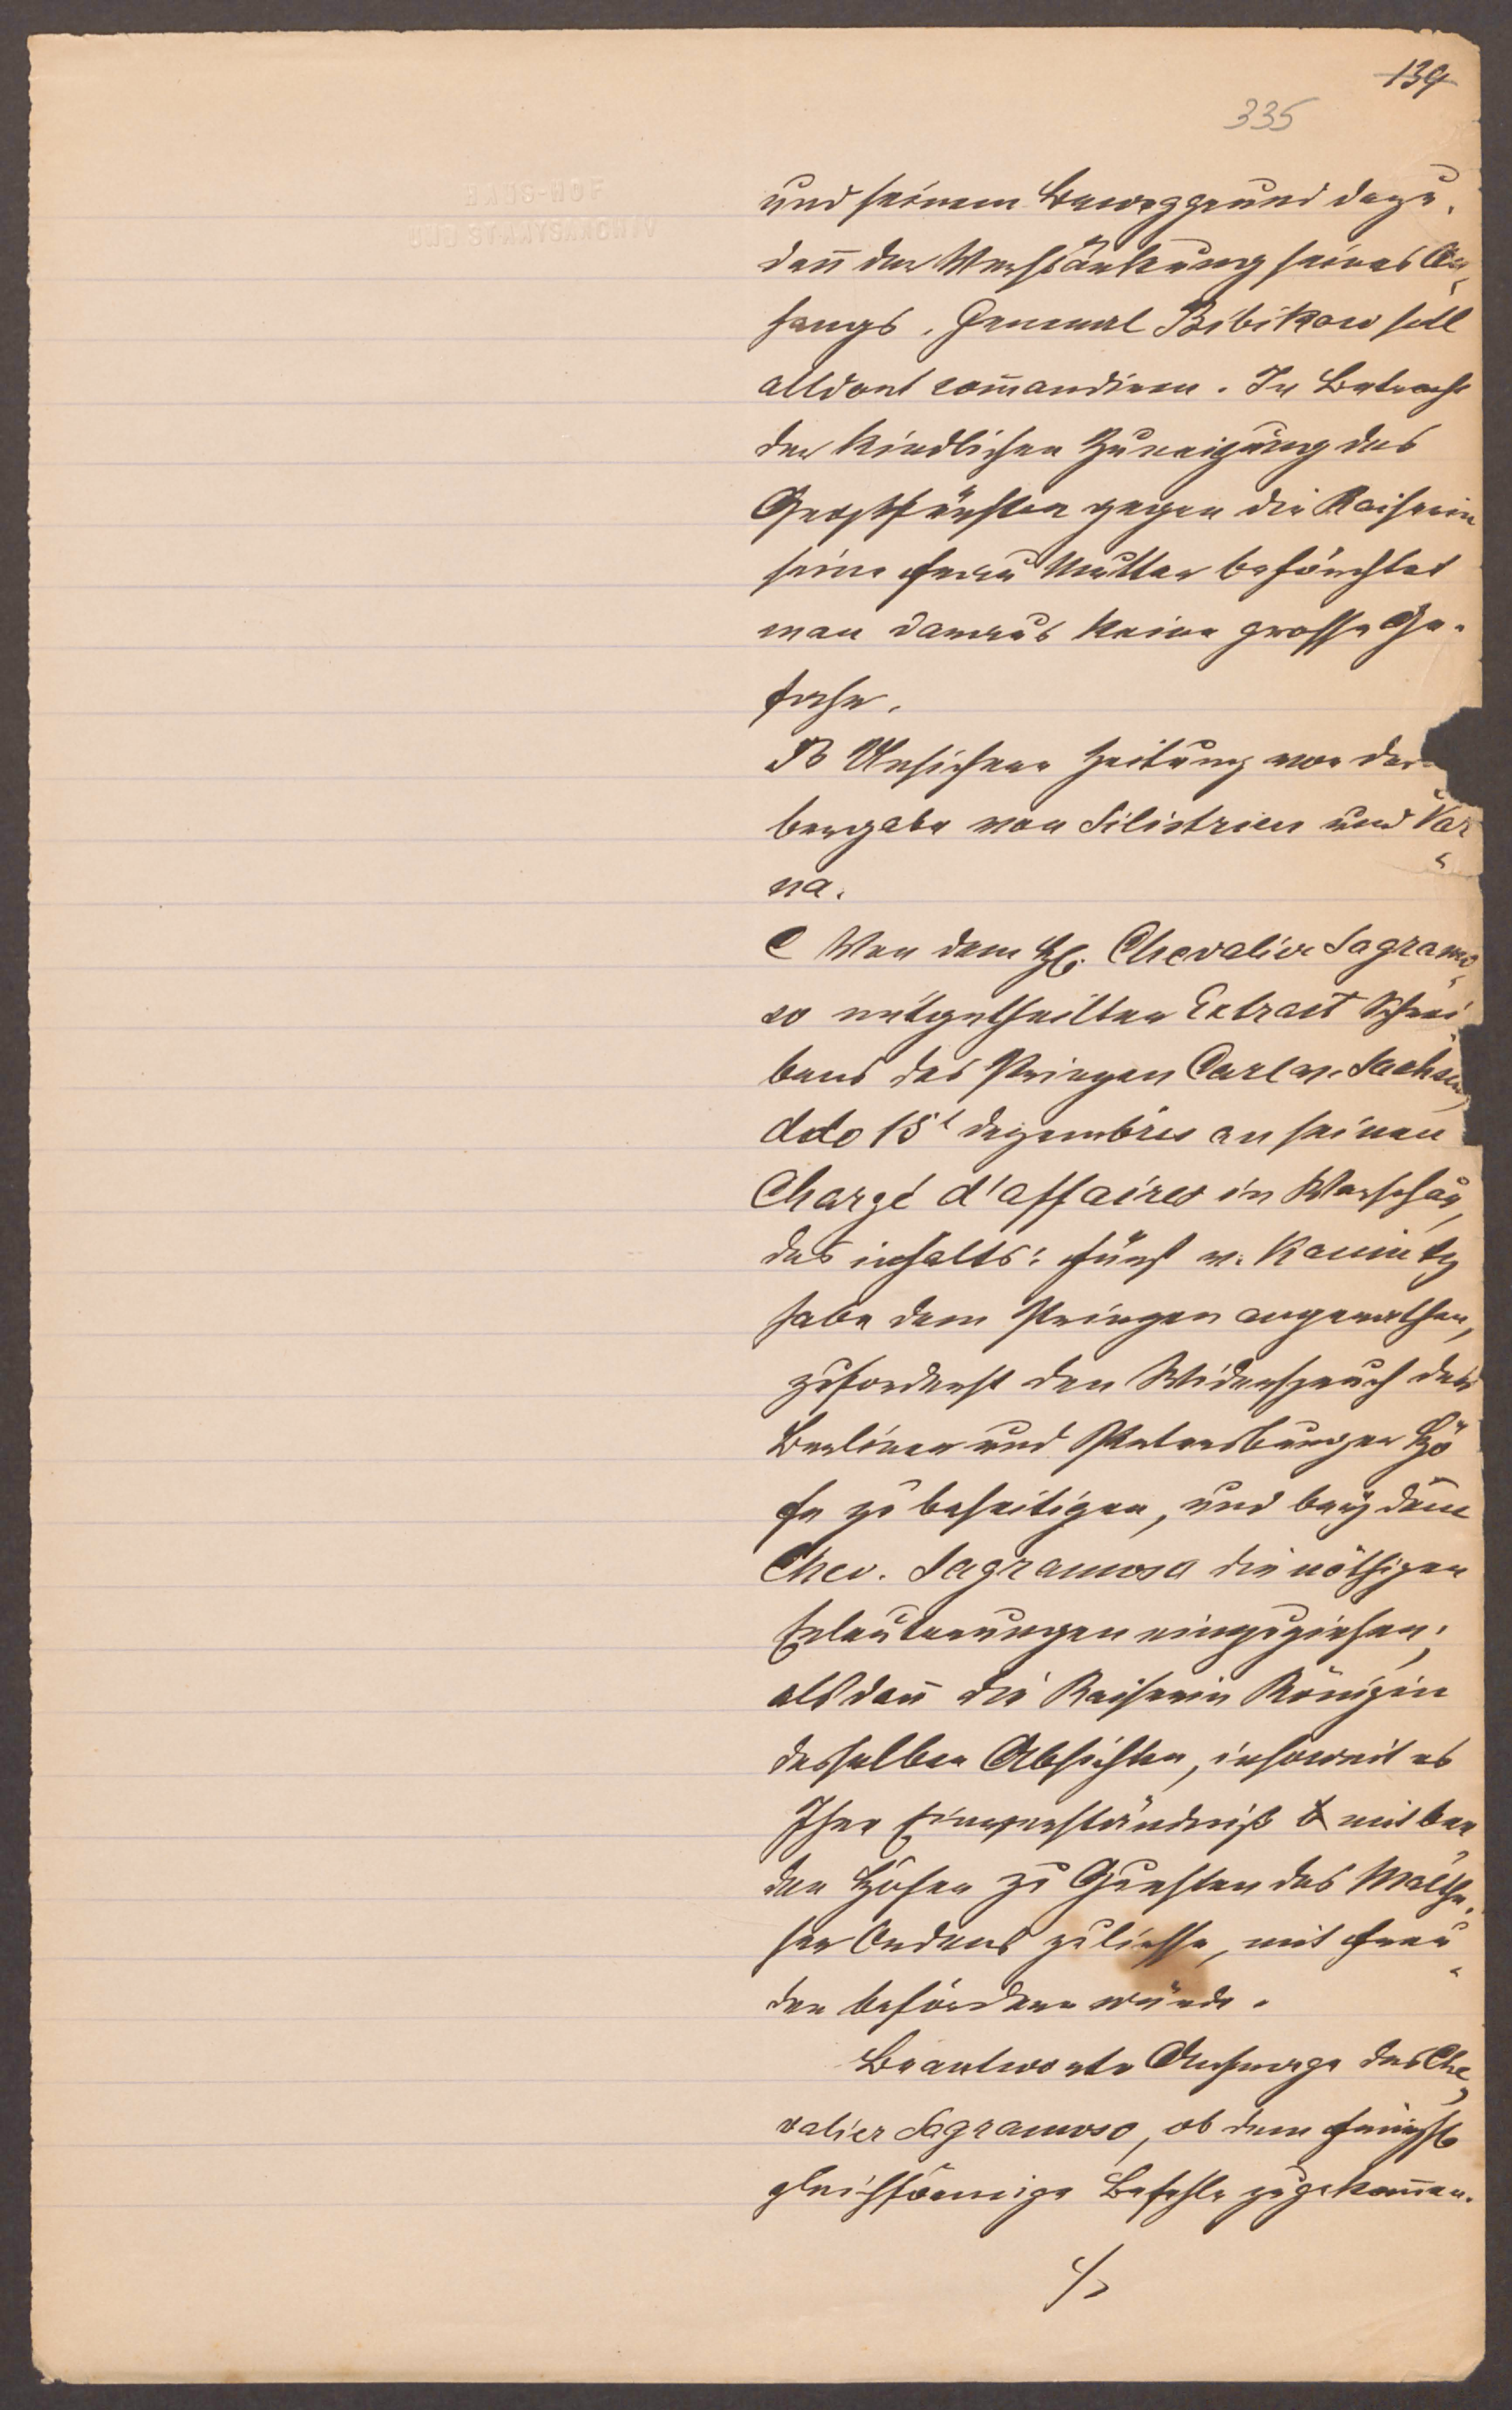 139
335
und seinem Beweggrund dazu,
dañ der Verstärkung seines An„
hangs. General Bibikow soll
alldort com̅andiren. In Betracht
der kindlichen Zuneigung des
Grossfürsten gegen die Kaiserin
seine Frau Mutter beförchtet
man daraus keine grosse Ge„
fahr.
B Unsichere Zeitung von der
bergabe von Silistrien und Var„
na.
C Von dem H. Chevalier Sagramo„
so mitgetheilter Extract Schrei
bens des Prinzen Carl v. Sachsen,
ddo 15t dezembris an seinen
Chargé d'affaires in Warschau,
des inhalts: Fürst v. Kaunitz
habe dem Prinzen angerathen,
zuforderst den Widerspruch der
Berliner und Petersburger Hö
fe zu beseitigen, und beÿ dem
Chev. Sagramoso die nöthigen
Erlauterungen einzuziehen;
als dañ die Kaiserin Königin
desselben Absichten, insoweit es
Ihre Einverständniß mit bee
den Höfen zu Gunsten des Malthe„
ser Ordens zuliesse, mit Freu„
den befördern würde.
Beantworte Anfrage des Che„
valier Sagramoso, ob dem
gleichförmige Befehle zugekom̅en.
./.
HAUS-HOF
UND STAATSARCHIV